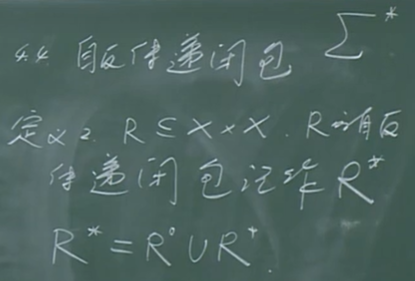 4.4 自反传递闭包 Σ*
定义2. R ⊆ X×X. R的自反
传递闭包记作 R*
R* = R° ∪ R⁺.